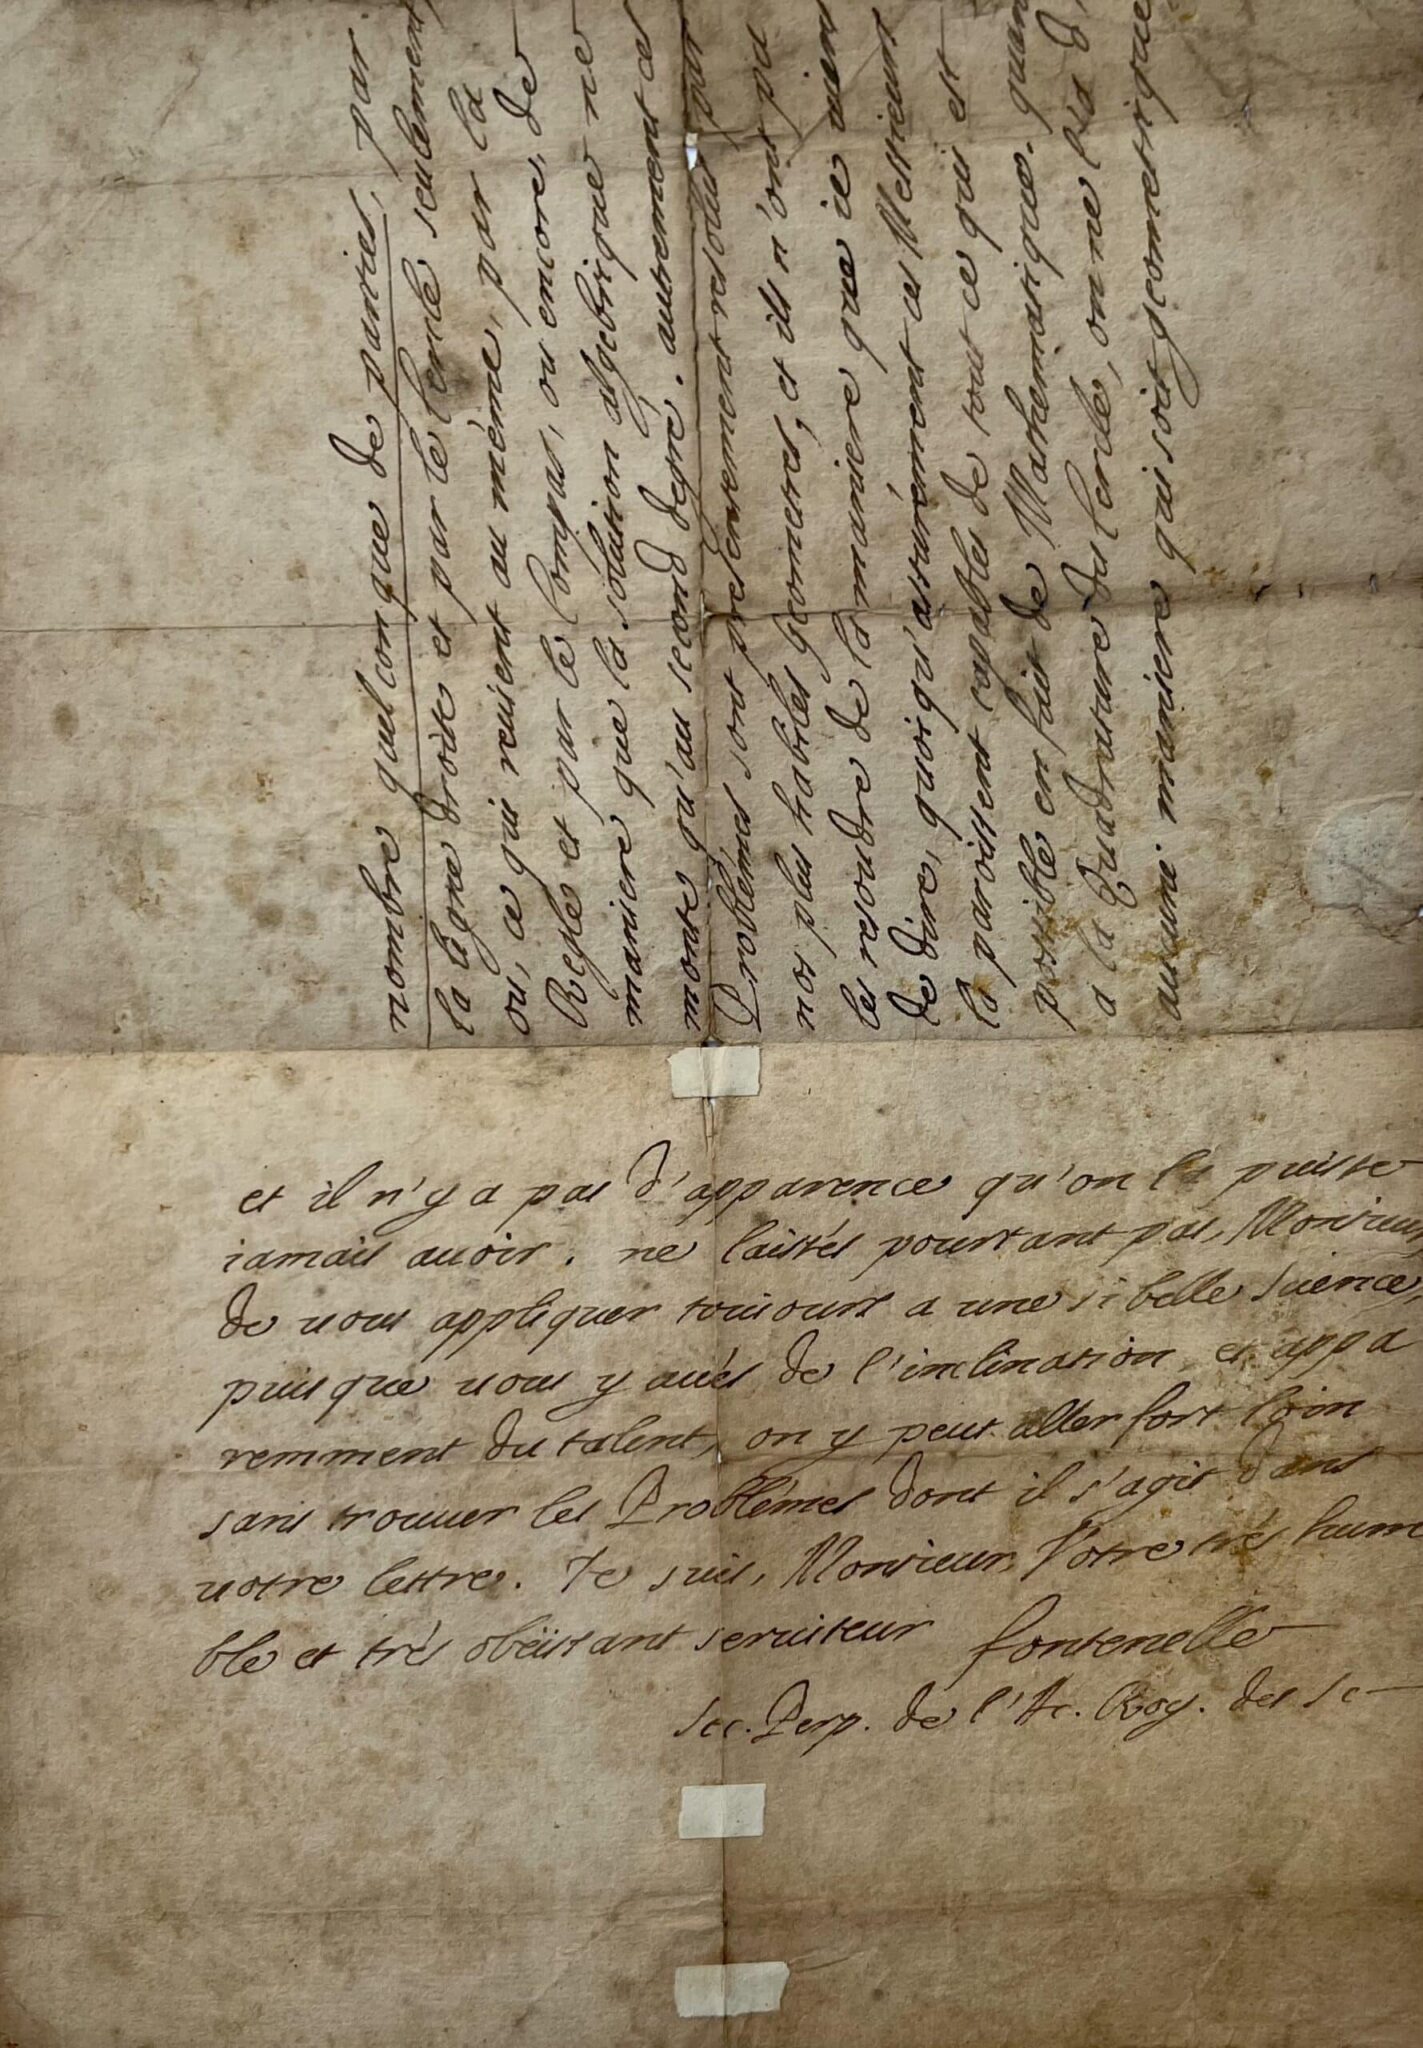 nombre quelconque de parties, par
la Ligne droite et par le Cercle seulement,
ou, ce qui reuient au mème, par la
Regle et par le Compas, ou encore, de
maniere que la solution algebrique ne
monte qu'au second degré. autrement ces
Problémes sont presentement resolus par
nos plus habiles Geometres, et ils n'ont pû
les resoudre de la maniere que ie uiens
de dire, quoiqu'assurément ces Messieurs
là paroissent capables de tout ce qui est
possible en fait de Mathematique. quant
a la Quadrature du Cercle, on ne l'a d'
aucune maniere qui soit geometrique
et il n'y a pas d'apparence qu'on la puisse
iamais auoir. ne laissés pourtant pas, Monsieur,
de uous appliquer touiours a une si belle Science,
puis que uous y aués de l'inclination, et appa
remment du talent, on y peut aller fort loin
sans trouuer les Problémes dont il s'agit dans
uotre lettre. Je suis, Monsieur, Votre trés hum
ble et trés obéissant seruiteur fontenelle
Sec. Perp. de l'Ac. Roy. des Sc